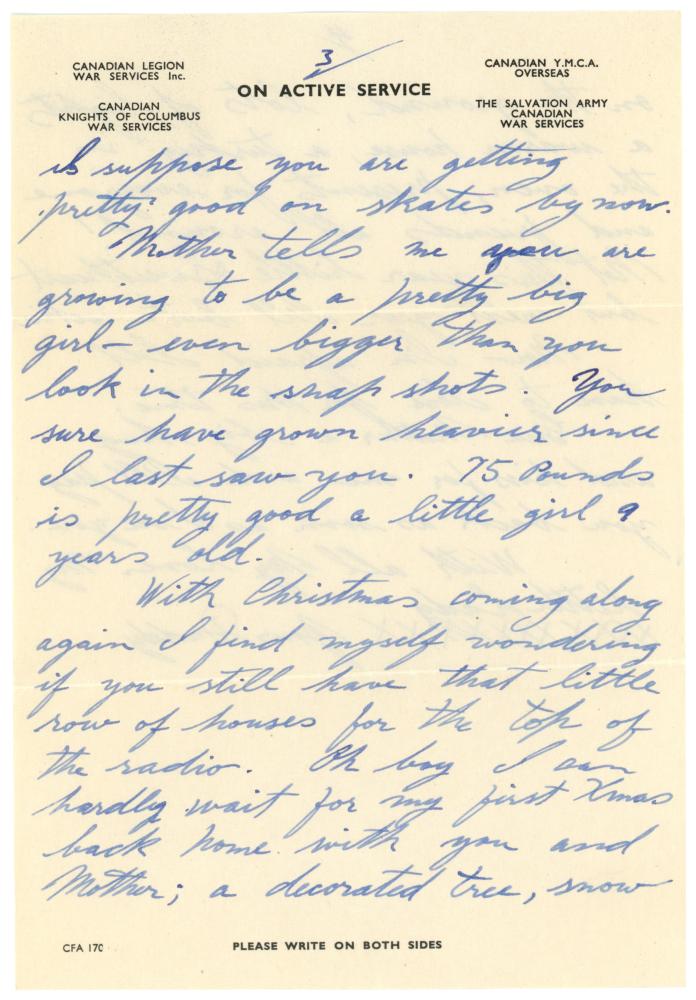 3
CANADIAN LEGION
WAR SERVICES Inc.
CANADIAN
KNIGHTS OF COLUMBUS
WAR SERVICES
ON ACTIVE SERVICE
CANADIAN Y.M.C.A.
OVERSEAS
THE SALVATION ARMY
CANADIAN
WAR SERVICES
I suppose you are getting
pretty good on skates by now.
Mother tells me you are
growing to be a pretty big
girl – even bigger than you
look in the snap shots. You
sure have grown heavier since
I last saw you. 75 Pounds
is pretty good a little girl 9
years old.
With Christmas coming along
again I find myself wondering
if you still have that little
row of houses for the top of
the radio. Oh boy I can
hardly wait for my first Xmas
back home with you and
Mother; a decorated tree, snow
CFA 170
PLEASE WRITE ON BOTH SIDES